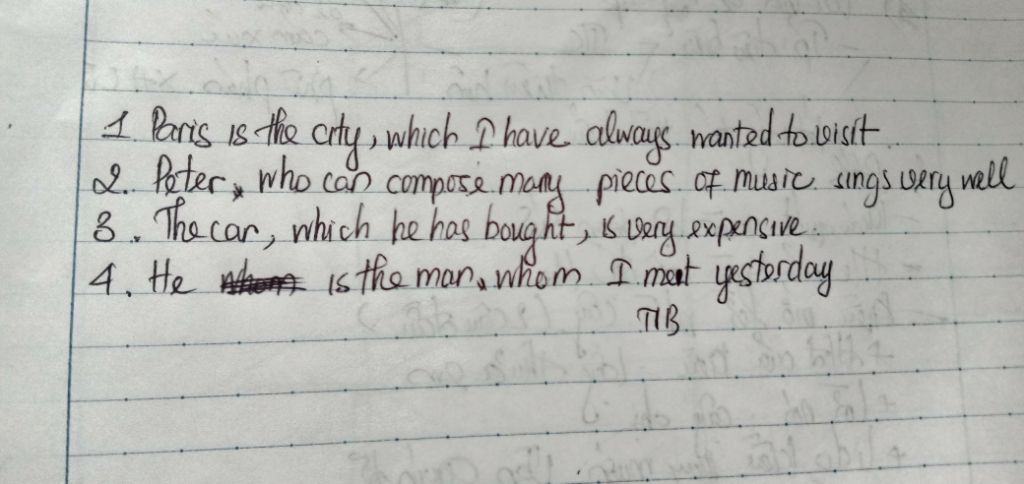 1 Paris is the city, which I have always wanted to visit
2. Peter, who can compose many pieces of music sings very well
3. The car, which he has bought, is very expensive.
4. He is the man, whom I meet yesterday